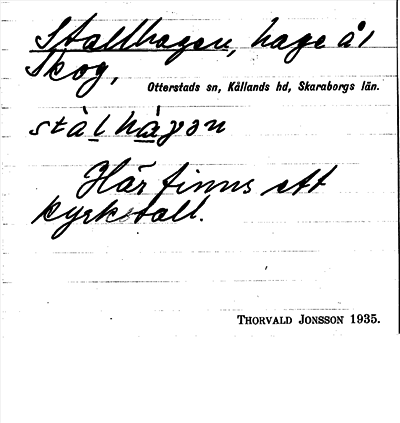 Stallhagen, hage å
Skog,
Otterstads sn, Kållands hd, Skaraborgs län.
stàlhàgən
Här finns ett
kyrkstall.
THORVALD JONSSON 1935.